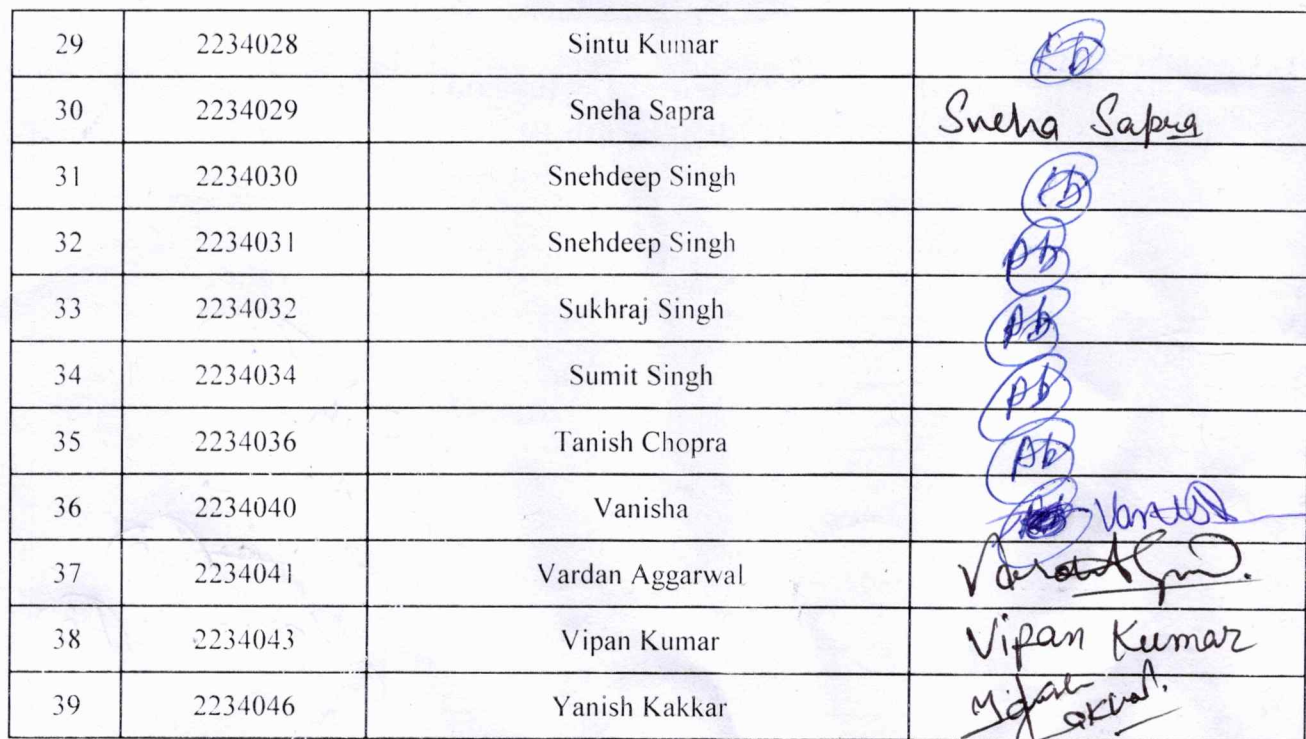 29 2234028 Sintu Kumar Ab
30 2234029 Sneha Sapra Sneha Sapra
31 2234030 Snehdeep Singh Ab
32 2234031 Snehdeep Singh Ab
33 2234032 Sukhraj Singh Ab
34 2234034 Sumit Singh Ab
35 2234036 Tanish Chopra Ab
36 2234040 Vanisha
37 2234041 Vardan Aggarwal
38 2234043 Vipan Kumar Vipan Kumar
39 2234046 Yanish Kakkar